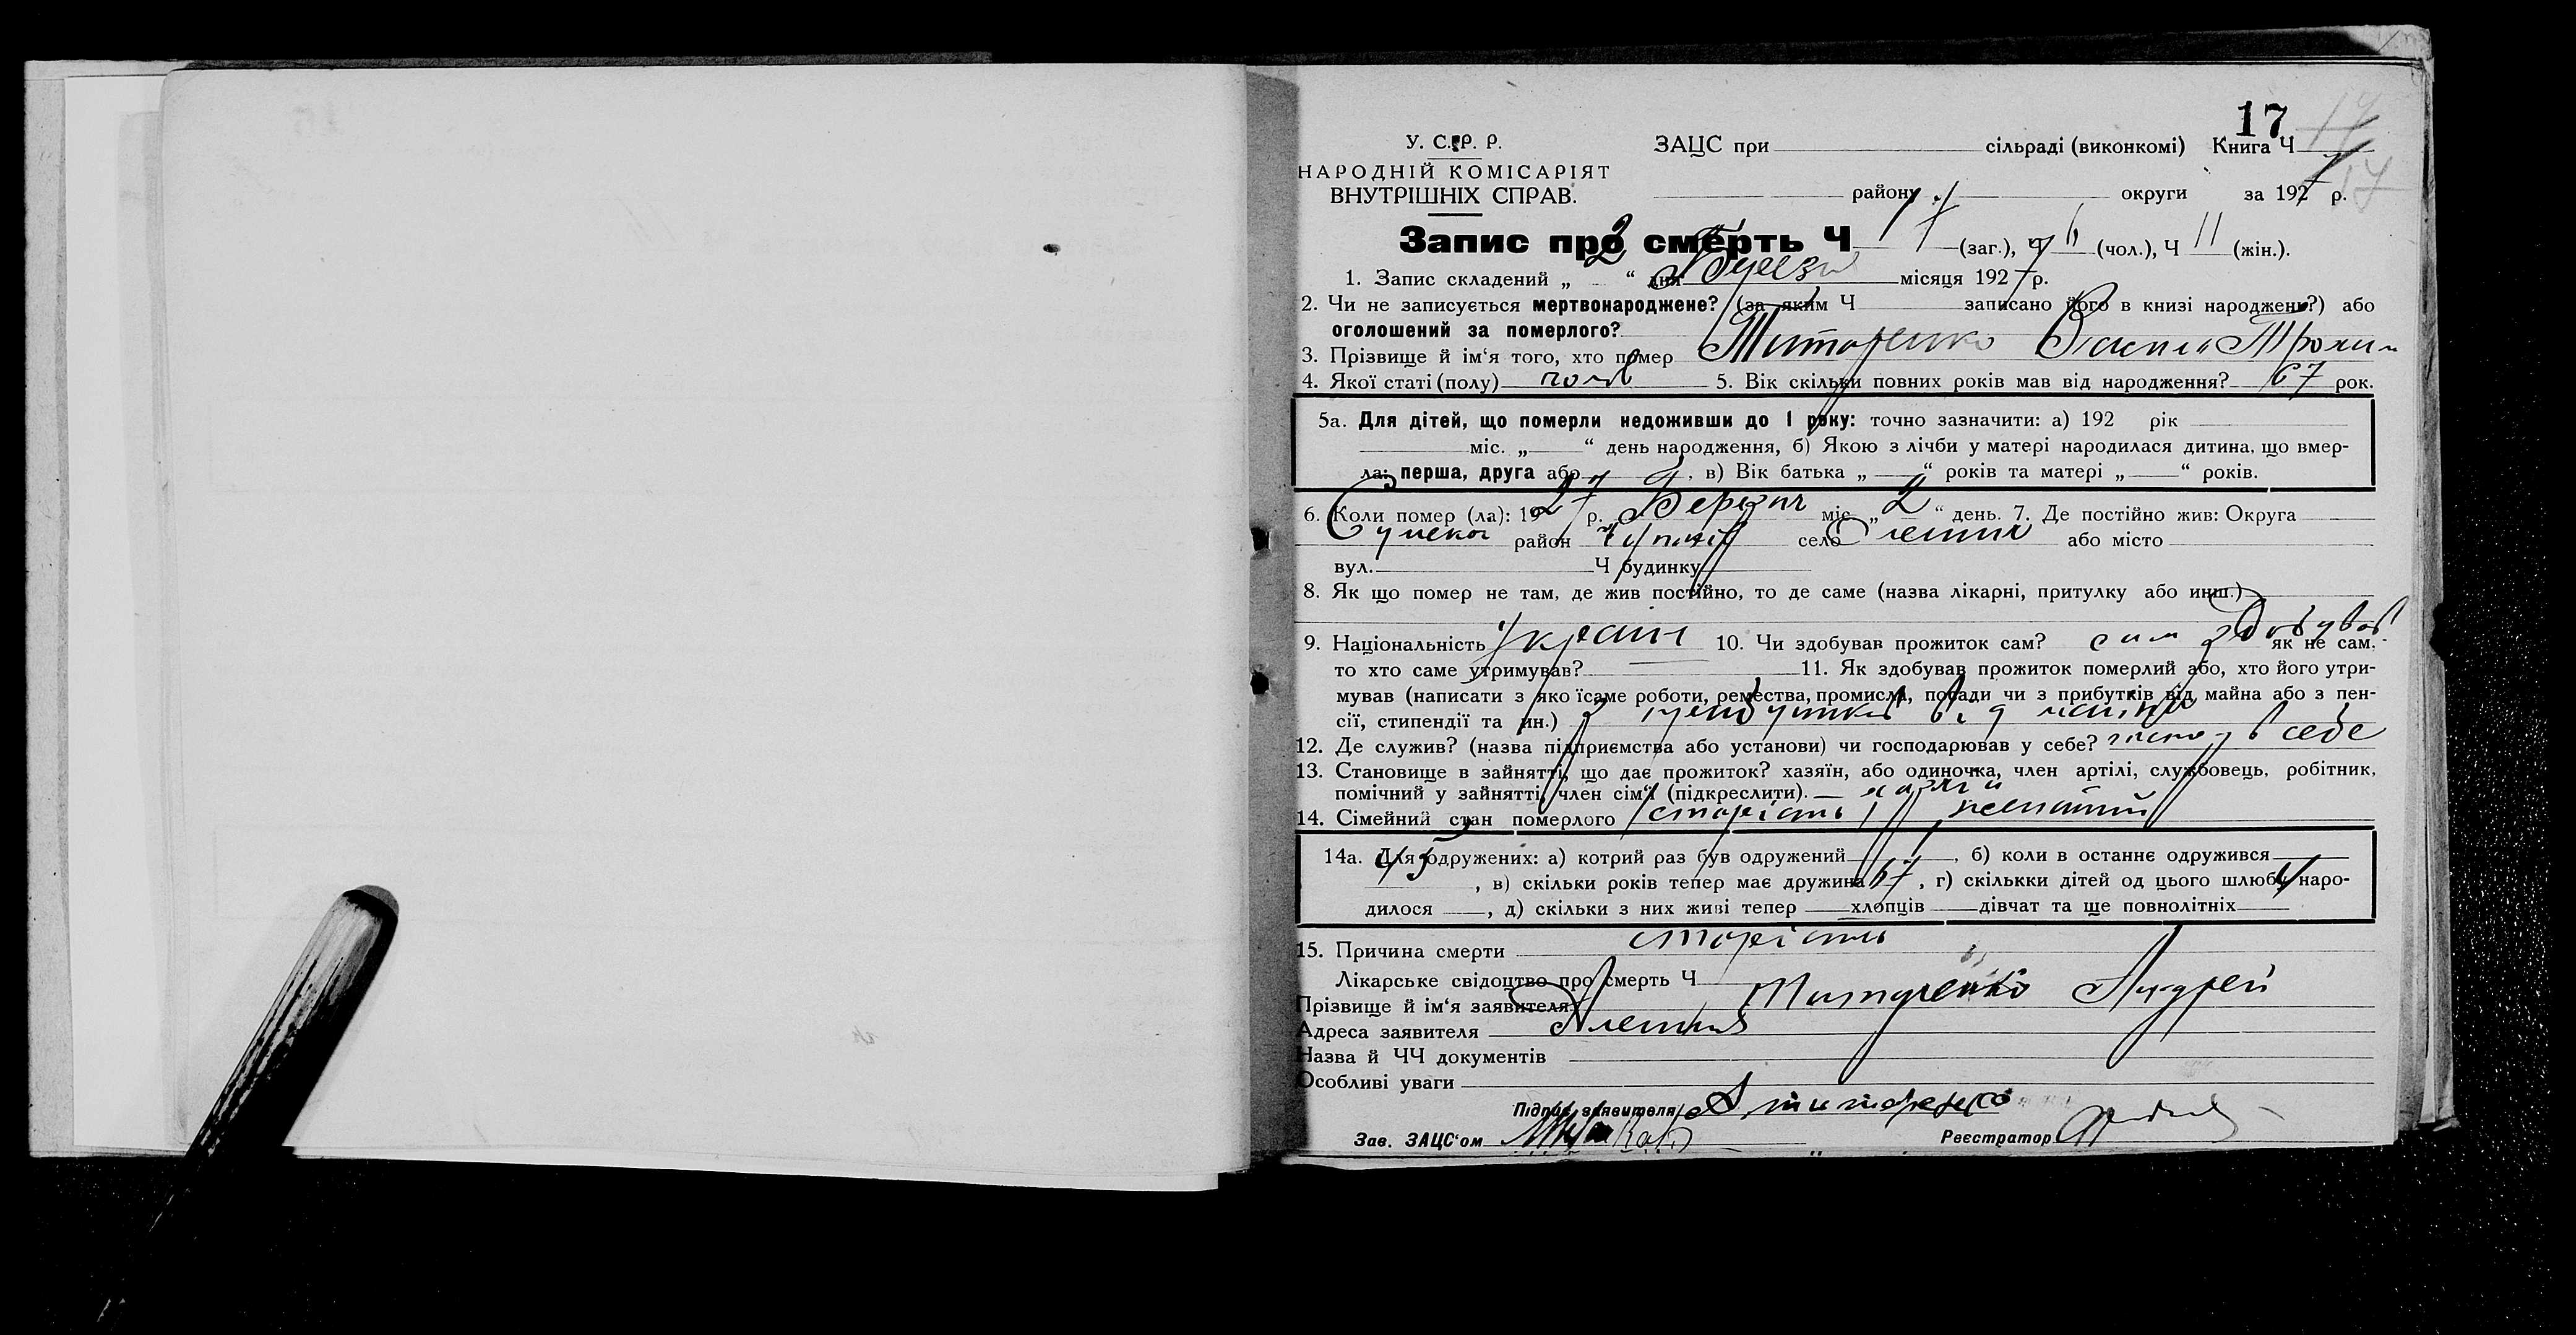 17
У. С. Р. Р. ЗАЦС при сільраді (виконкомі) Книга Ч
НАРОДНІЙ КОМІСАРІЯТ
ВНУТРІШНІХ СПРАВ. району округи за 1927 р.
Запис про смерть Ч 17 (заг.), Ч 6 (чол.), Ч 11 (жін.).
1. Запис складений „ 2 “ дня місяця 1927 р.
2. Чи не записується мертвонароджене? (за яким Ч записано його в книзі народжень?) або
оголошений за померлого?
3. Прізвище й ім‘я того, хто помер Титаренко
4. Якої статі (полу) чолов 5. Вік скільки повних років мав від народження? 67 рок.
5а. Для дітей, що померли недоживши до 1 року: точно зазначити: а) 192 рік
міс. „ “ день народження, б) Якою з лічби у матері народилася дитина, що вмер-
ла: перша, друга або , в) Вік батька „ “ років та матері „ “ років.
6. Коли помер (ла): 1927 р. Березня міс. „ 2 “ день. 7. Де постійно жив: Округа
Сумська район село або місто
вул. Ч будинку
8. Як що помер не там, де жив постійно, то де саме (назва лікарні, притулку або инш.)
9. Національність Україн 10. Чи здобував прожиток сам? сам здобував як не сам,
то хто саме утримував? 11. Як здобував прожиток померлий або, хто його утри-
мував (написати з яко їсаме роботи, ремества, промисла, посади чи з прибутків від майна або з пен-
сії, стипендії та ин.) з прибутків від майна
12. Де служив? (назва підприємства або установи) чи господарював у себе? в себе
13. Становище в зайнятті, що дає прожиток? хазяїн, або одиночка, член артілі, службовець, робітник,
помічний у зайнятті, член сім‘ї (підкреслити).
14. Сімейний стан померлого
14а. Для одружених: а) котрий раз був одружений 1, б) коли в останнє одружився
, в) скільки років тепер має дружина 67, г) скількки дітей од цього шлюбу наро-
дилося 4, д) скільки з них живі тепер хлопців дівчат та ще повнолітніх
15. Причина смерти старість
Лікарське свідоцтво про смерть Ч
Прізвище й ім‘я заявителя Титаренко Андрей
Адреса заявителя
Назва й ЧЧ документів
Особливі уваги
Підпис заявителя А Титаренко
Зав. ЗАЦС‘ом Реєстратор